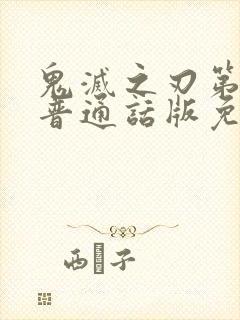 鬼滅之刃第
普通話版免
西子